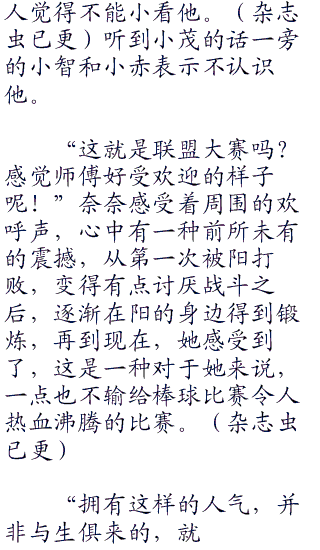 人觉得不能小看他。（杂志
虫已更）听到小茂的话一旁
的小智和小赤表示不认识
他。
“这就是联盟大赛吗？
感觉师傅好受欢迎的样子
呢！”奈奈感受着周围的欢
呼声，心中有一种前所未有
的震撼，从第一次被阳打
败，变得有点讨厌战斗之
后，逐渐在阳的身边得到锻
炼，再到现在，她感受到
了，这是一种对于她来说，
一点也不输给棒球比赛令人
热血沸腾的比赛。（杂志虫
已更）
“拥有这样的人气，并
非与生俱来的，就